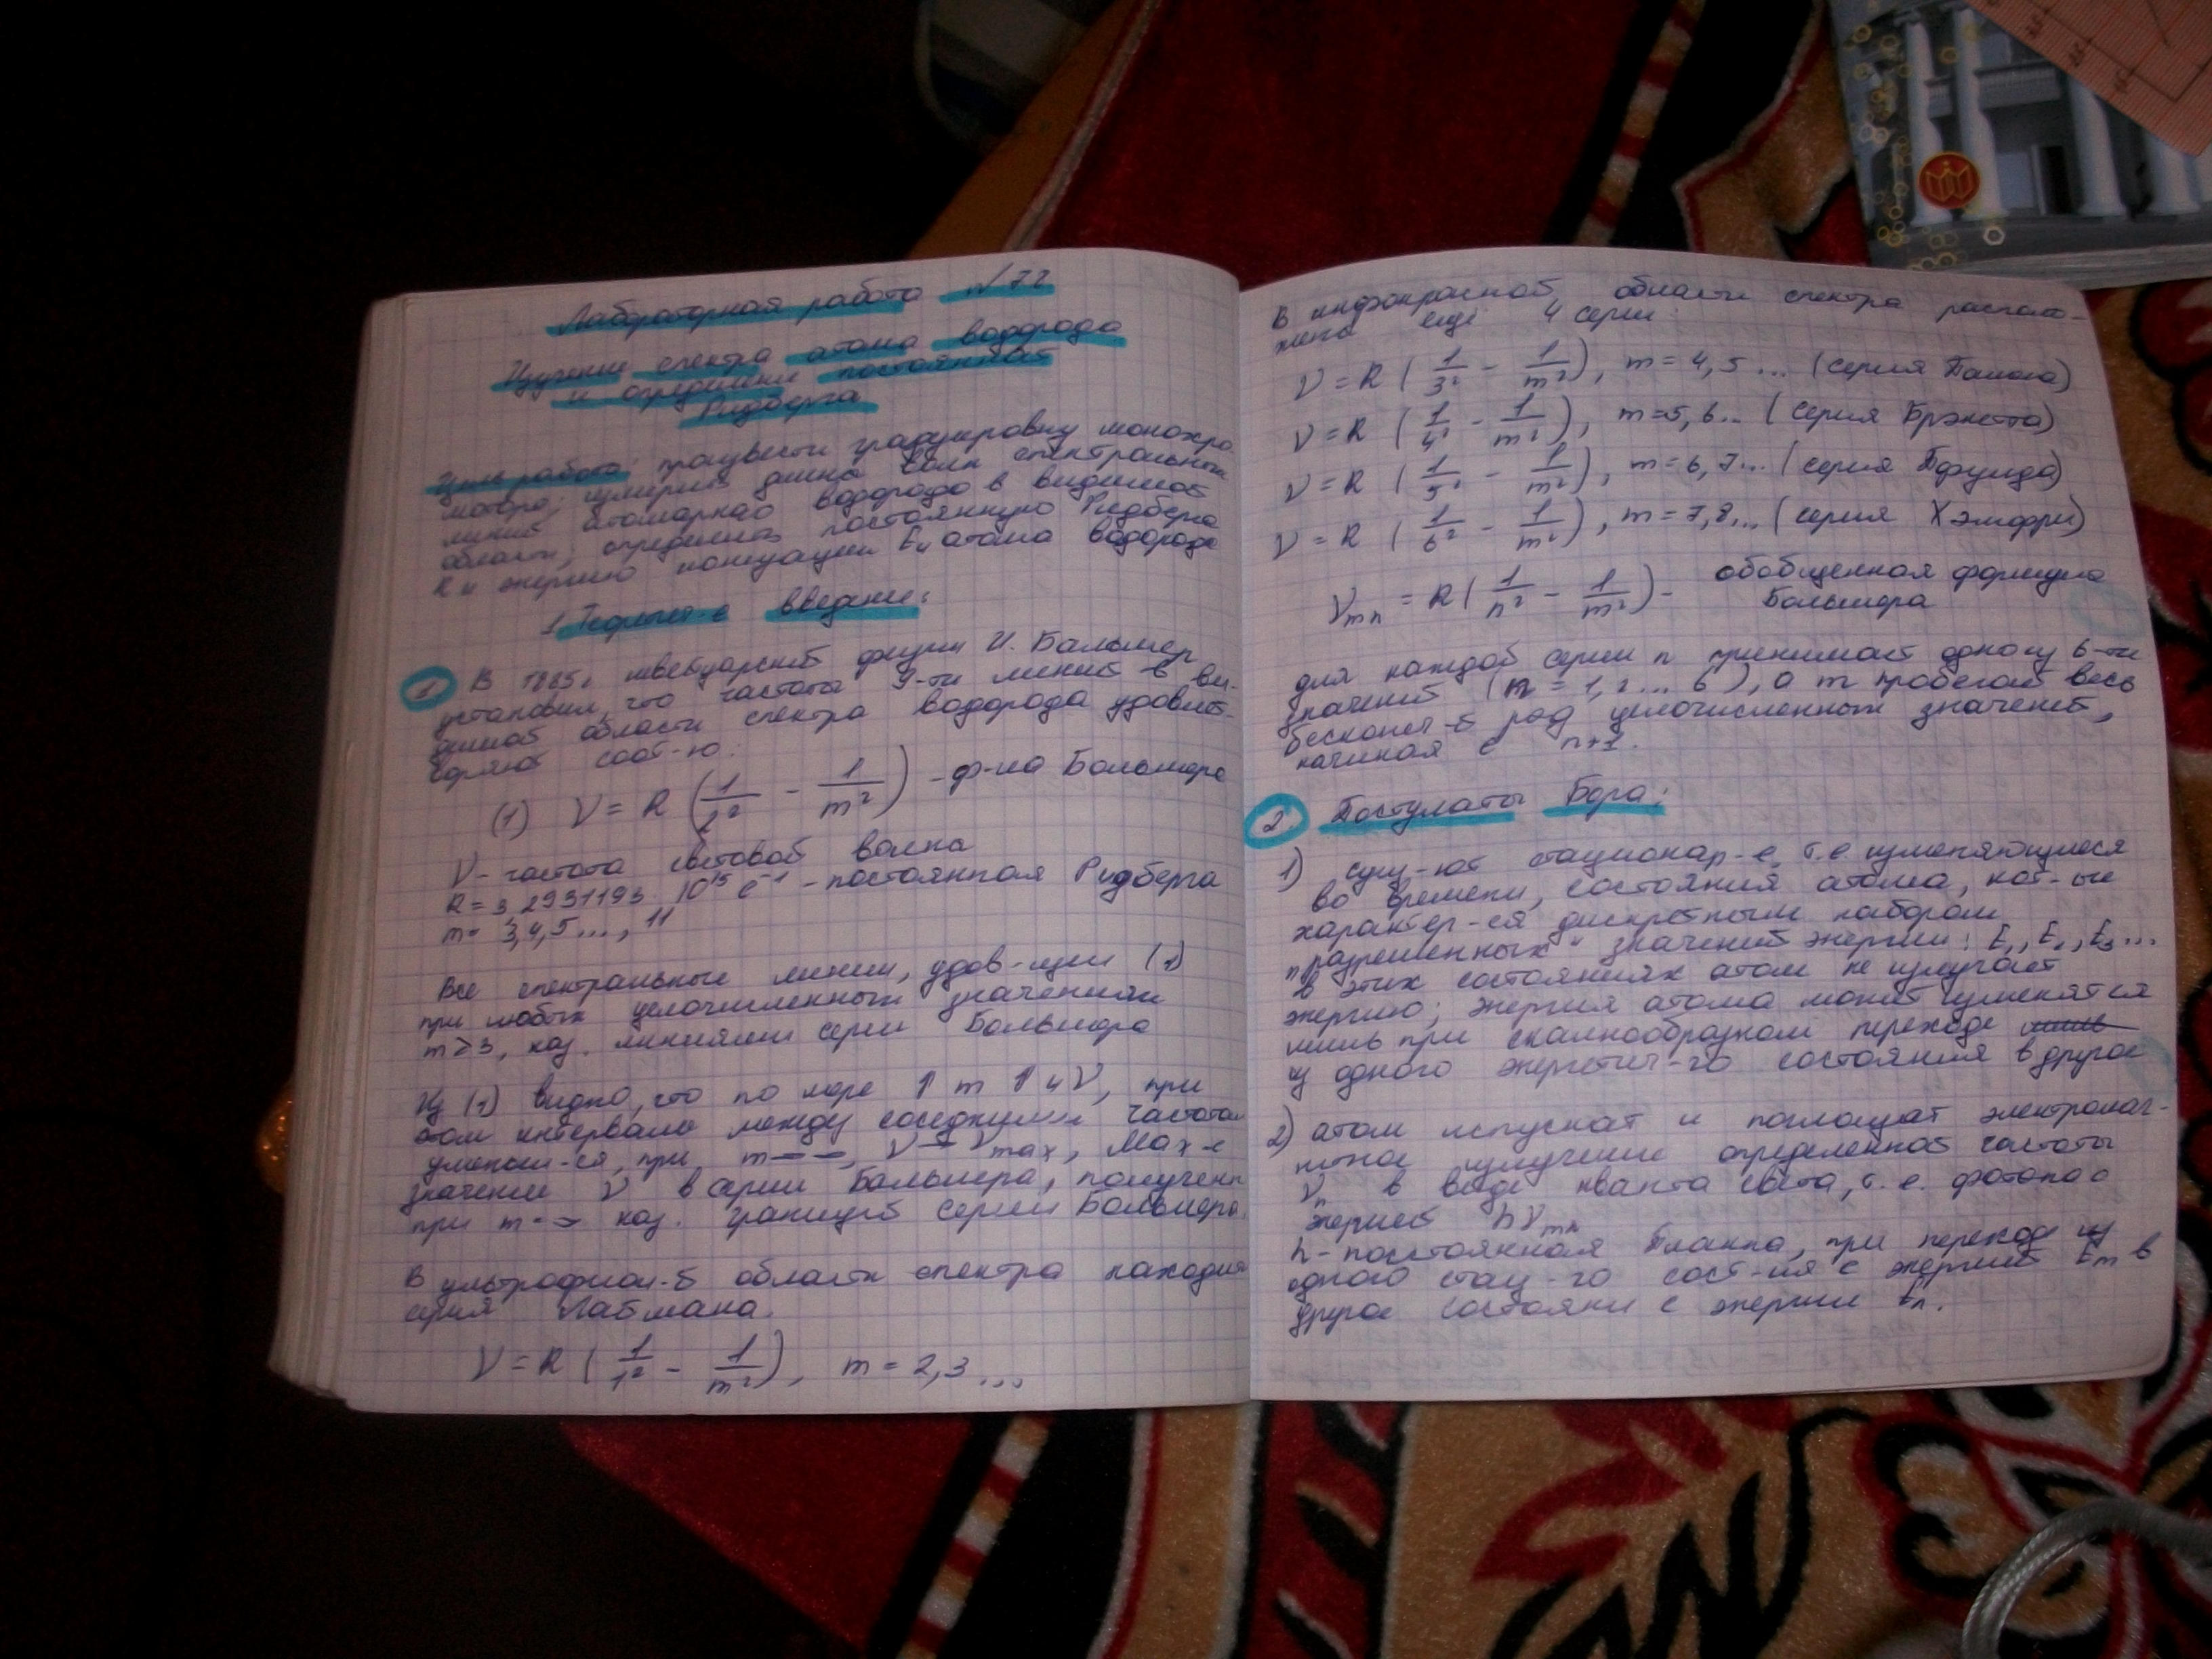 Лабораторная работа №72
Изучение спектра атома водорода
и определение постоянной
Ридберга
Цель работы: произвести градуировку монохро-
матора; измерить длины волн спектральных
линий атомарного водорода в видимой
области; определить постоянную Ридберга
R и энергию ионизации Eи атома водорода
1. Теорет-е введение:
1. В 1885г швейцарский физик И. Бальмер
установил, что частота 9-ти линий в ви-
димой области спектра водорода удовлет-
воряют соот-ю:
(1) ν = R (1/2² - 1/m²) - ф-ла Бальмера
ν - частота световой волны
R = 3,2931193 10¹⁵ c⁻¹ - постоянная Ридберга
m = 3,4,5..., 11
Все спектральные линии, удов-щие (1)
при любых целочисленных значениях
m ≥ 3, наз. линиями серии Бальмера
Из (1) видно, что по мере ↑ m ↑ и ν, при
этом интервалы между соседними частотами
уменьш-ся, при m → ∞, ν → νmax, Max-е
значение ν в серии Бальмера, полученн
при m → ∞ наз. границей серии Бальмера.
В ультрафиол-й области спектра находится
серия Лаймана.
ν = R (1/1² - 1/m²), m = 2,3 ...
В инфракрасной области спектра располо-
жены ещё 4 серии:
ν = R (1/3² - 1/m²), m = 4,5 ... (серия Пашена)
ν = R (1/4² - 1/m²), m = 5,6... (серия Брэкетта)
ν = R (1/5² - 1/m²), m = 6,7... (серия Пфунда)
ν = R (1/6² - 1/m²), m = 7,8... (серия Хэмфри)
νmn = R (1/n² - 1/m²) - обобщенная формула
Бальмера
для каждой серии n принимает одно из 6-ти
значений (n = 1,2 ... 6), а m пробегает весь
бесконеч-й ряд целочисленных значений,
начиная с n+1.
2. Постулаты Бора:
1) сущ-ют стационар-е, т.е. изменяющиеся
во времени, состояния атома, кот-ые
характер-ся дискретным набором
"разрешенных" значений энергии: E₁, E₂, E₃...
В этих состояниях атом не излучает
энергию; энергия атома может изменятся
лишь при скачкообразном переходе лишь
из одного энергетич-го состояния в другое
2) атом испускает и поглощает электромаг-
нитное излучение определенной частоты
νn в виде кванта света, т.е. фотона с
энергией hνmn
h - постоянная Планка, при переходе из
одного стац-го сост-ия с энергией Em в
другое состояни с энергии En.